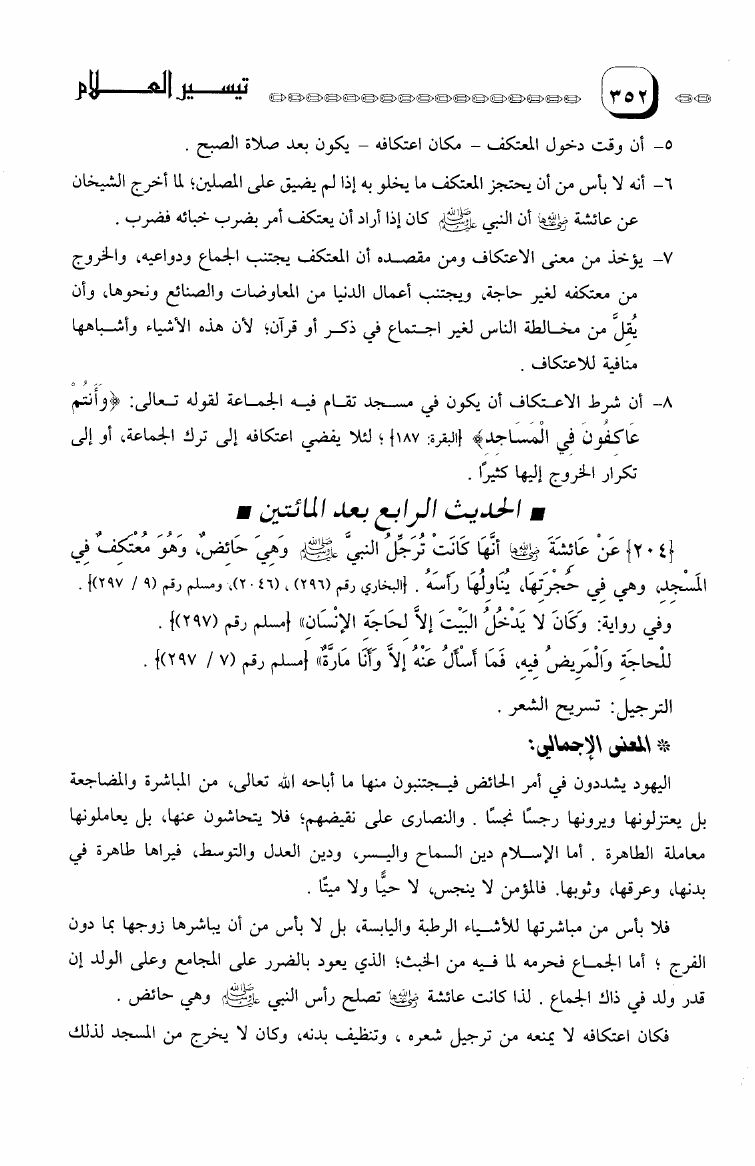 ٣٥٢
تيسير العلام
٥- أن وقت دخول المعتكف – مكان اعتكافه – يكون بعد صلاة الصبح .
٦- أنه لا بأس من أن يحتجز المعتكف ما يخلو به إذا لم يضيق على المصلين؛ لما أخرج الشيخان
عن عائشة رضي الله عنها أن النبي ﷺ كان إذا أراد أن يعتكف أمر بضرب خبائه فضرب .
٧- يؤخذ من معنى الاعتكاف ومن مقصده أن المعتكف يجتنب الجماع ودواعيه، والخروج
من معتكفه لغير حاجة، ويجتنب أعمال الدنيا من المعاوضات والصنائع ونحوها، وأن
يُقلَّ من مخالطة الناس لغير اجتماع في ذكر أو قرآن؛ لأن هذه الأشياء وأشباهها
منافية للاعتكاف .
٨- أن شرط الاعتكاف أن يكون في مسجد تقام فيه الجماعة لقوله تعالى: ﴿وَأَنتُمْ
عَاكِفُونَ فِي الْمَسَاجِدِ﴾ {البقرة: ١٨٧} ؛ لئلا يفضي اعتكافه إلى ترك الجماعة، أو إلى
تكرار الخروج إليها كثيرًا .
■ الحديث الرابع بعد المائتين ■
{٢٠٤} عَنْ عَائشَةَ رضي الله عنها أنَّهَا كَانَتْ تُرَجِّلُ النبيَّ ﷺ وَهِيَ حَائضٌ، وَهُوَ مُعْتَكفٌ في
المَسْجِدِ، وهي في حُجْرَتِهَا، يُنَاولُهَا رَأسَهُ . {البخاري رقم (٢٩٦) ، (٢٠٤٦)، ومسلم رقم (٩ / ٢٩٧)} .
وفي رواية: وَكَانَ لا يَدْخُلُ البَيْتَ إلاَّ لحَاجَةِ الإنْسَانِ» {مسلم رقم (٢٩٧)} .
للْحَاجةِ وَالْمَرِيضُ فيه، فَمَا أسْألُ عَنْهُ إلاَّ وَأنَا مَارَّةٌ» {مسلم رقم (٧ / ٢٩٧)} .
الترجيل: تسريح الشعر .
* المعنى الإجمالي:
اليهود يشددون في أمر الحائض فيجتنبون منها ما أباحه الله تعالى، من المباشرة والمضاجعة
بل يعتزلونها ويرونها رجسًا نجسًا . والنصارى على نقيضهم؛ فلا يتحاشون عنها، بل يعاملونها
معاملة الطاهرة . أما الإسلام دين السماح واليسر، ودين العدل والتوسط، فيراها طاهرة في
بدنها، وعرقها، وثوبها. فالمؤمن لا ينجس، لا حيًّا ولا ميتًا .
فلا بأس من مباشرتها للأشياء الرطبة واليابسة، بل لا بأس من أن يباشرها زوجها بما دون
الفرج ؛ أما الجماع فحرمه لما فيه من الخبث؛ الذي يعود بالضرر على المجامع وعلى الولد إن
قدر ولد في ذاك الجماع . لذا كانت عائشة رضي الله عنها تصلح رأس النبي ﷺ وهي حائض .
فكان اعتكافه لا يمنعه من ترجيل شعره ، وتنظيف بدنه، وكان لا يخرج من المسجد لذلك